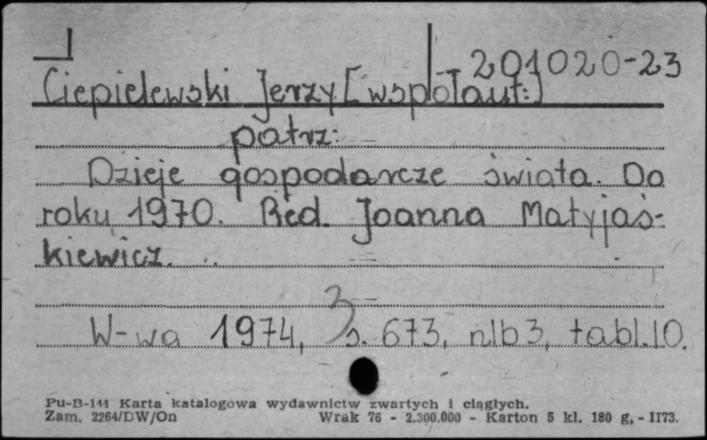 201020-23
Ciepielewski Jerzy [współaut:]
patrz:
Dzieje gospodarcze świata. Do
roku 1970. Red. Joanna Matyjaś-
kiewicz.
W-wa 1974, s. 673, nlb 3, tabl. 10.
3
Pu-B-144 Karta katalogowa wydawnictw zwartych i ciągłych.
Zam. 2264/DW/On Wrak 76 - 2.300.000 - Karton 5 kl. 180 g, - II73.